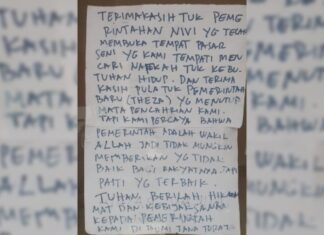 TERIMAKASIH TUK PEME
RINTAHAN NIVI YG TELAH
MEMBUKA TEMPAT PASAR
SENI YG KAMI TEMPATI MEN
CARI NAFKAH TUK KEBU
TUHAN HIDUP. DAN TERIMA
KASIH PULA TUK PEMERINTAH
BARU (THEZA) YG MENUTUP
MATA PENCAHRIAN KAMI.
TAPI KAMI PERCAYA BAHWA
PEMERINTAH ADALAH WAKIL
ALLAH JADI TIDAK MUNGKIN
MEMBERIKAN YG TIDAK
BAIK BAGI RAKYATNYA. TAPI
PASTI YG TERBAIK.
TUHAN BERILAH HIK
MAT DAN KEBIJAKSANAAN
KEPADA PEMERINTAH
KAMI DI BUMI TANA TORAJA